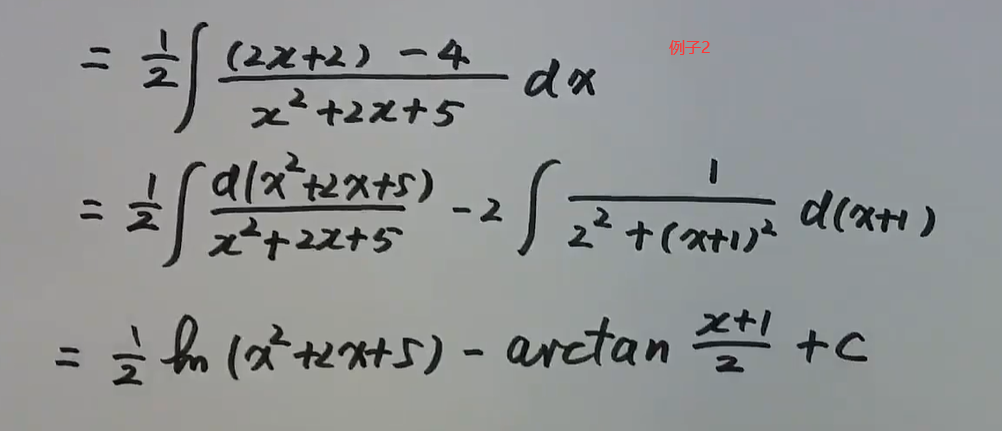 = 1/2 ∫ (2x+2) - 4 / x²+2x+5 dx 例子2
= 1/2 ∫ d(x²+2x+5) / x²+2x+5 - 2 ∫ 1 / 2²+(x+1)² d(x+1)
= 1/2 ln (x²+2x+5) - arctan x+1/2 + C